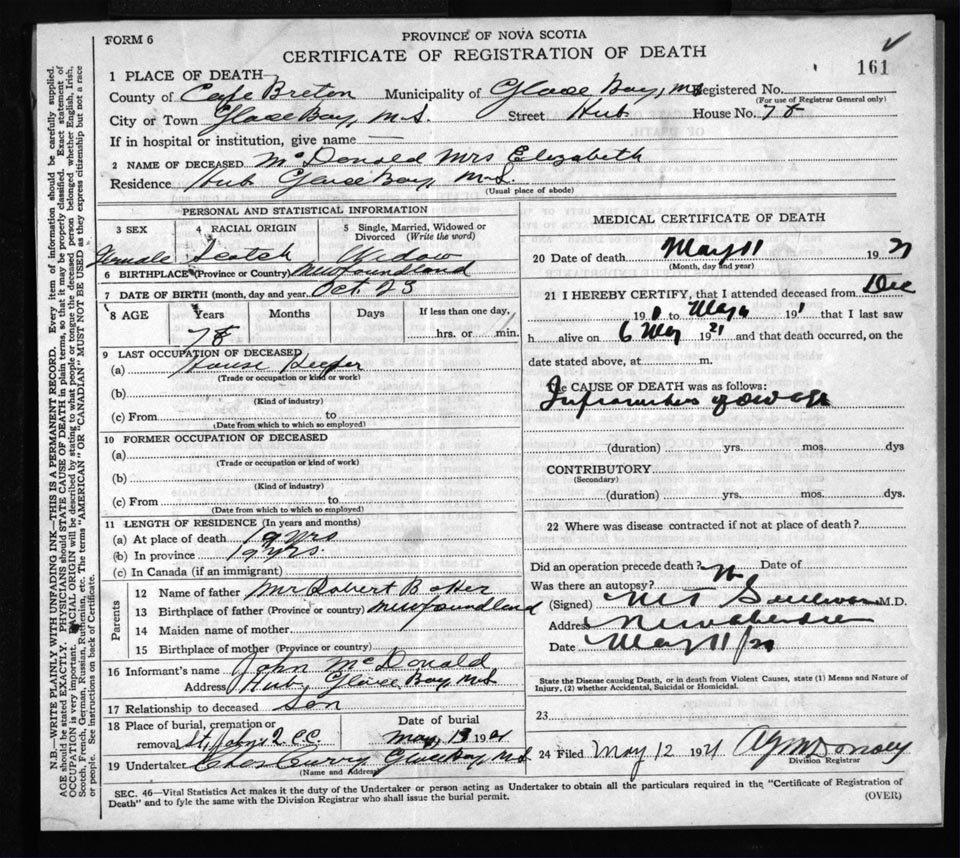 FORM 6
PROVINCE OF NOVA SCOTIA
CERTIFICATE OF REGISTRATION OF DEATH
161
1 PLACE OF DEATH
County of Cape Breton Municipality of Glace Bay, N.S. Registered No.
(For use of Registrar General only)
City or Town Glace Bay, N.S. Street Hub House No. 78
If in hospital or institution, give name —
2 NAME OF DECEASED McDonald Mrs Elizabeth
Residence Hub Glace Bay, N.S.
(Usual place of abode)
PERSONAL AND STATISTICAL INFORMATION
3 SEX 4 RACIAL ORIGIN 5 Single, Married, Widowed or Divorced (Write the word)
Female Scotch Widow
6 BIRTHPLACE (Province or Country) Newfoundland
7 DATE OF BIRTH (month, day and year) Oct. 23
8 AGE Years Months Days If less than one day,
78 hrs. or min.
9 LAST OCCUPATION OF DECEASED
(a) House Keeper
(Trade or occupation or kind or work)
(b)
(Kind of industry)
(c) From to
(Date from which to which so employed)
10 FORMER OCCUPATION OF DECEASED
(a)
(Trade or occupation or kind of work)
(b)
(Kind of industry)
(c) From to
(Date from which to which so employed)
11 LENGTH OF RESIDENCE (In years and months)
(a) At place of death 19 yrs
(b) In province 19 yrs.
(c) In Canada (if an immigrant)
Parents
12 Name of father Mr Robert
13 Birthplace of father (Province or country) Newfoundland
14 Maiden name of mother
15 Birthplace of mother (Province or country)
16 Informant's name John McDonald
Address Hub, Glace Bay, N.S
17 Relationship to deceased Son
18 Place of burial, cremation or removal St. John's Date of burial May, 13 1921
19 Undertaker Ches Curry Glace Bay, N.S
(Name and Address)
MEDICAL CERTIFICATE OF DEATH
20 Date of death May 11 1921
(Month, day and year)
21 I HEREBY CERTIFY, that I attended deceased from Dec
19 to May 19 that I last saw
h alive on 6 May 1921 and that death occurred, on the
date stated above, at m.
The CAUSE OF DEATH was as follows:
Infirmities of old age
(duration) yrs. mos. dys
CONTRIBUTORY
(Secondary)
(duration) yrs. mos. dys.
22 Where was disease contracted if not at place of death?
Did an operation precede death? No Date of
Was there an autopsy?
(Signed) M T Sullivan M.D.
Address New Aberdeen
Date May 11/21
State the Disease causing Death, or in death from Violent Causes, state (1) Means and Nature of
Injury, (2) whether Accidental, Suicidal or Homicidal.
23
24 Filed May 12 1921
Division Registrar
SEC. 46—Vital Statistics Act makes it the duty of the Undertaker or person acting as Undertaker to obtain all the particulars required in the "Certificate of Registration of
Death" and to fyle the same with the Division Registrar who shall issue the burial permit.
(OVER)
N.B.—WRITE PLAINLY WITH UNFADING INK—THIS IS A PERMANENT RECORD. Every item of information should be carefully supplied.
AGE should be stated EXACTLY. PHYSICIANS should STATE CAUSE OF DEATH in plain terms, so that it may be properly classified. Exact statement of
OCCUPATION is very important. RACIAL ORIGIN will be described by stating to what people or tongue the deceased person belonged whether English, Irish,
Scotch, French, German, Russian, Ruthenian, etc. The terms "AMERICAN" OR "CANADIAN" MUST NOT BE USED as they express citizenship but not a race
or people. See instructions on back of Certificate.